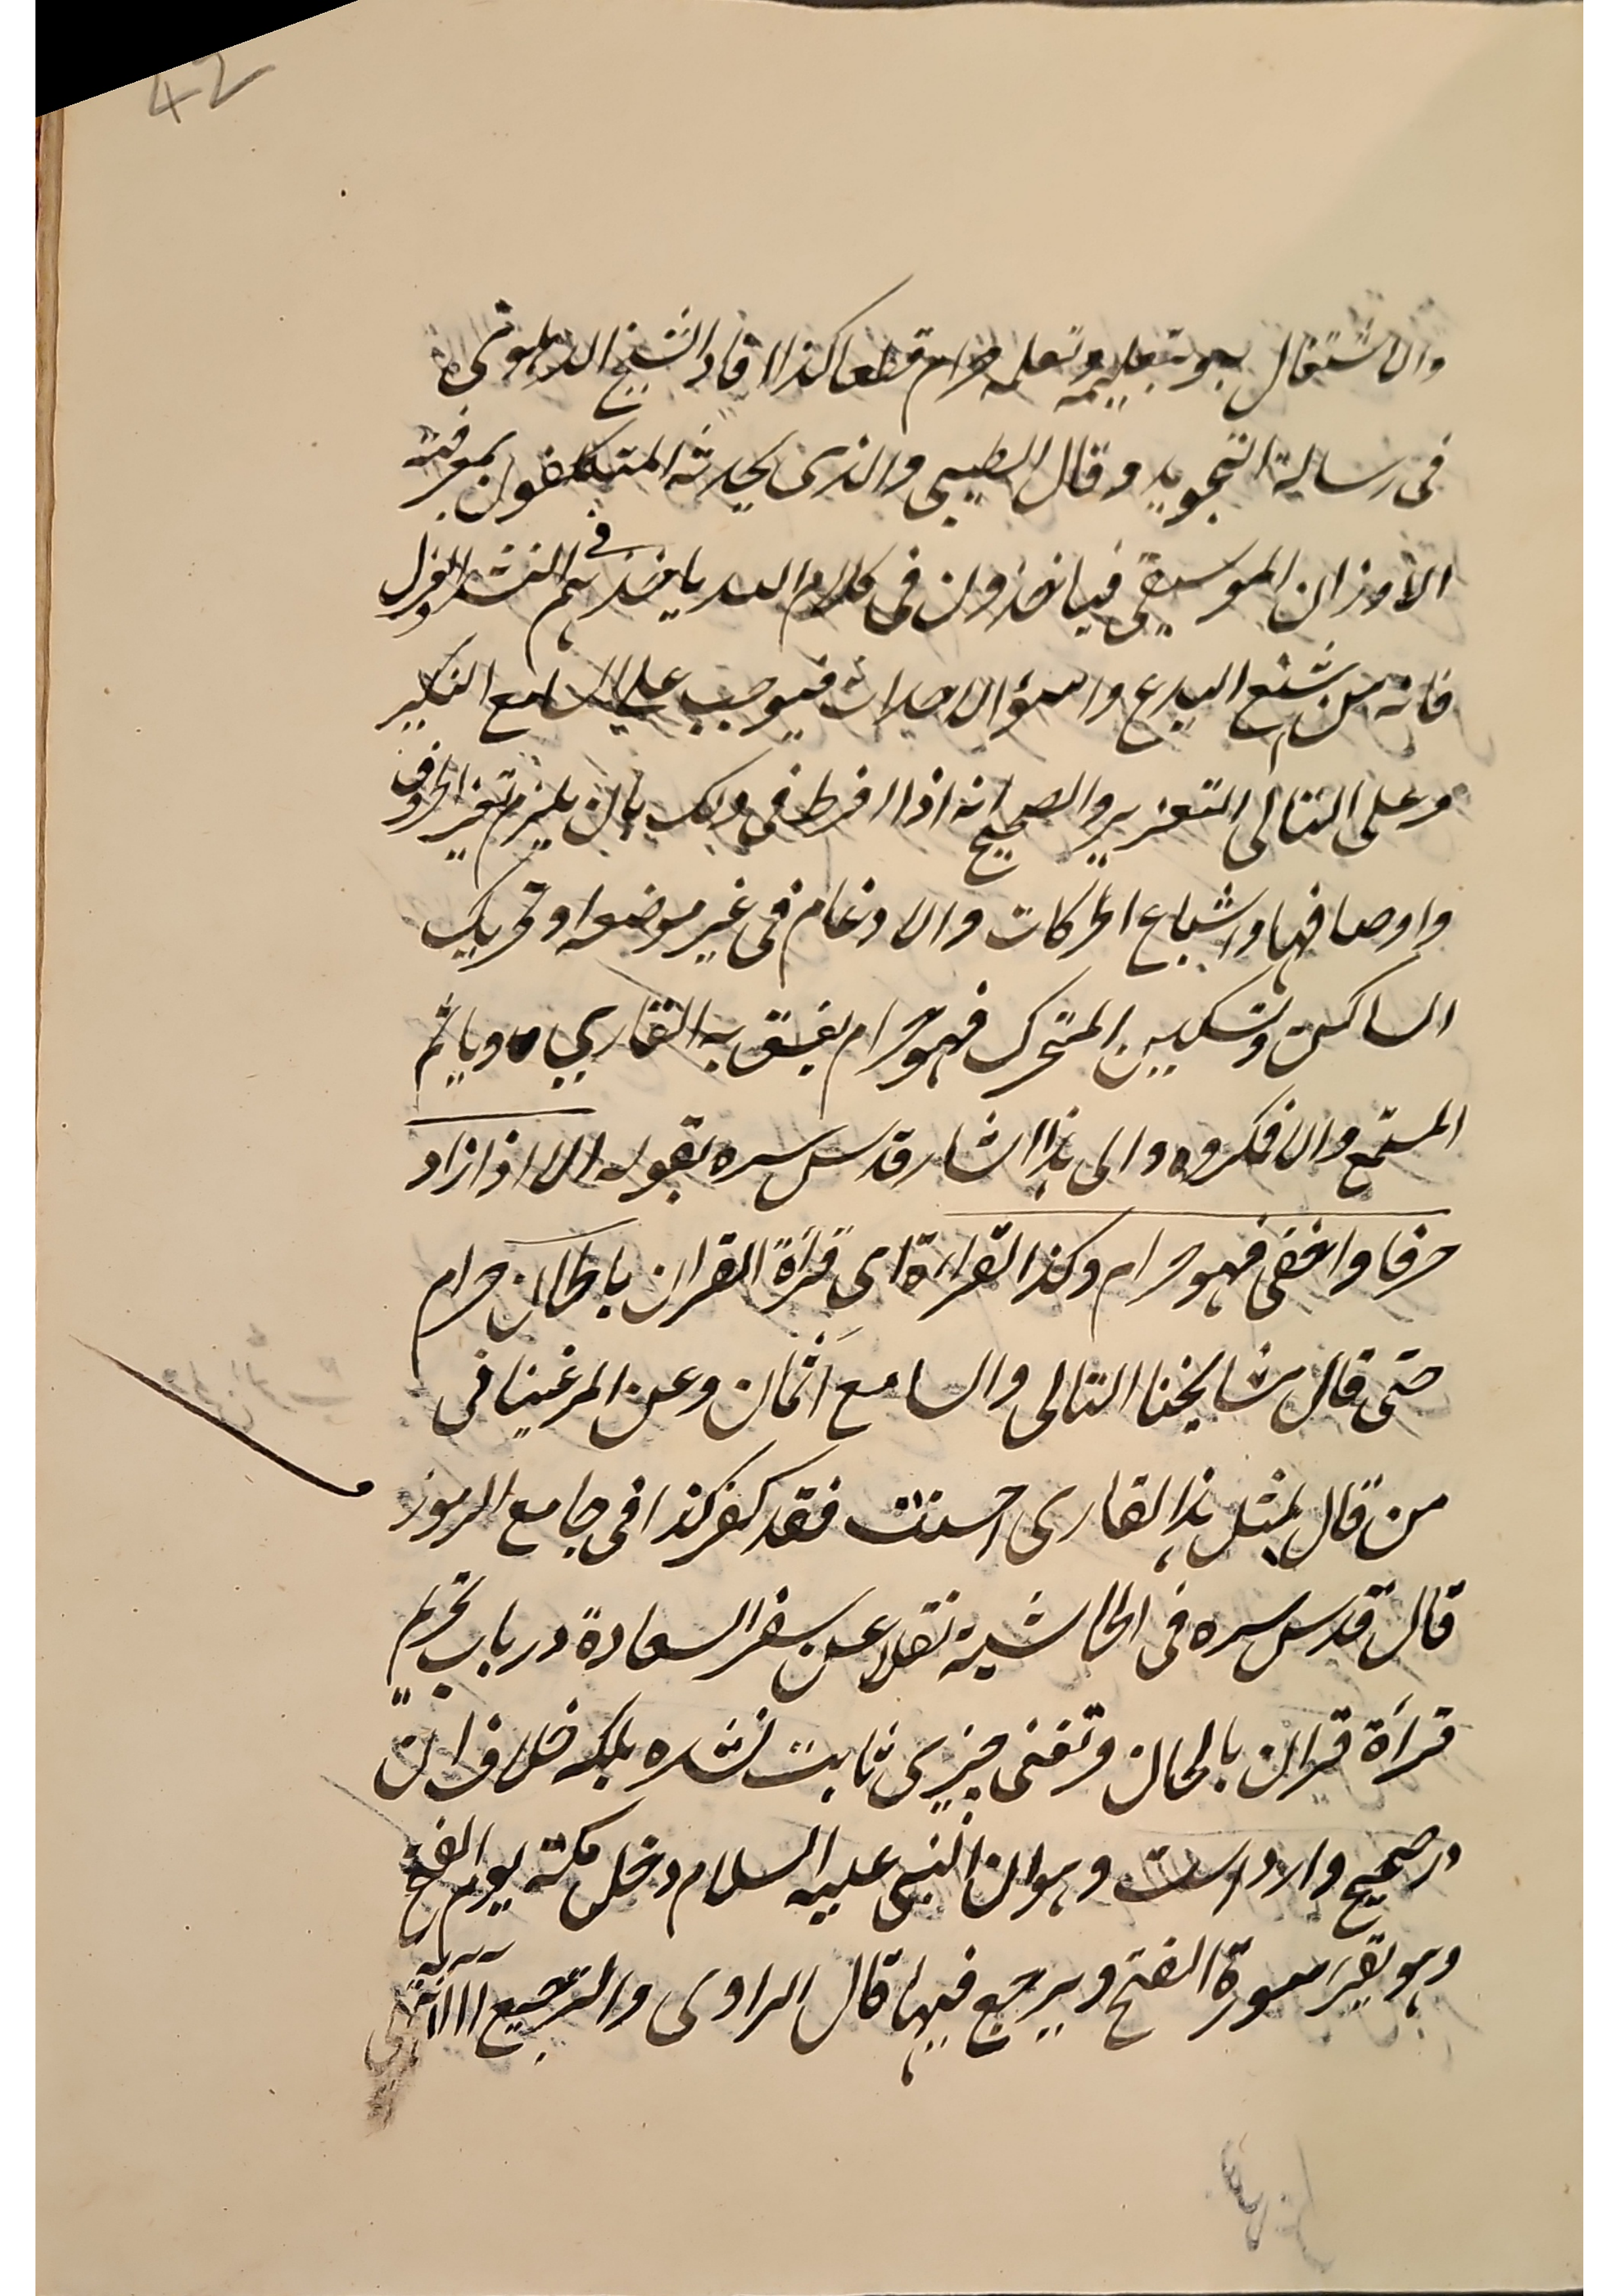 42
والاشتغال به وتعليمه وتعلمه حرام قطعا كذا افاد الشيخ الدهلوى
فى رسالة التجويد وقال الطيبى والذى يحدثه المتكلفون بمعرفة
الاوزان الموسيقى فياخذون فى كلام الله ماخذهم فى النشد والغزل
فانه من اشنع البدع واسوأ الاحداث فيوجب على السامع النكير
وعلى التالى التعزير والصحيح انه اذا افرط فى ذلك بان يلزم تغير الحروف
واوصافها واشباع الحركات والادغام فى غير موضعه وتحريك
الساكن وتسكين المتحرك فهو حرام يفسق به القاري وياثم
المستمع والا فمكروه والى هذا اشار قدس سره بقوله الا اذا زاد
حرفا واخفى فهو حرام وكذا القراءة اى قرأة القران بالحان حرام
حتى قال مشايخنا التالى والسامع آثمان وعن المرغينانى
من قال لمثل هذا القارى احسنت فقد كفر كذا فى جامع الرموز
قال قدس سره فى الحاشية نقلا عن سفر السعادة در باب تحريم
قرأة قران بالحان وتغنى چيزى ثابت نشده بلكه خلاف ان
در صحيح وارد است وهو ان النبى عليه السلام دخل مكة يوم الفتح
وهو يقرء سورة الفتح ويرجع فيها قال الراوى والترجيع آ آ آ